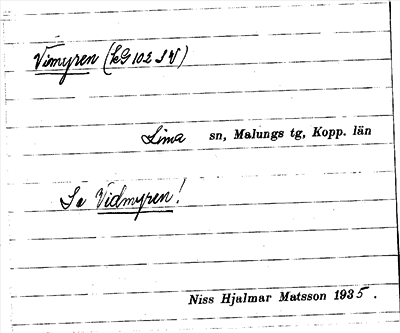 Vimyren (LG 102 SV)
Lima sn, Malungs tg, Kopp. län
Se Vidmyren!
Niss Hjalmar Matsson 1935.